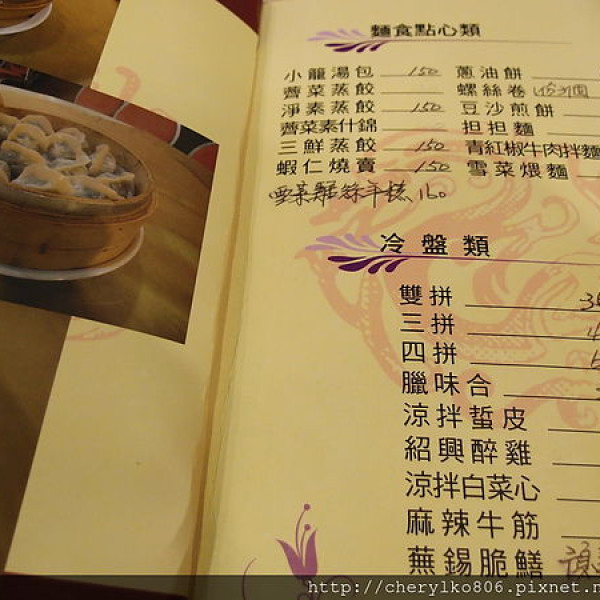 麵食點心類
小籠湯包 150 蔥油餅
薺菜蒸餃 螺絲卷
淨素蒸餃 150 豆沙煎餅
薺菜素什錦 担担麵
三鮮蒸餃 150 青紅椒牛肉拌麵
蝦仁燒賣 150 雪菜煨麵
年糕 160
冷盤類
雙拼
三拼
四拼
臘味合
涼拌蜇皮
紹興醉雞
涼拌白菜心
麻辣牛筋
蕪錫脆鱔
http://cherylko806.pixnet.n